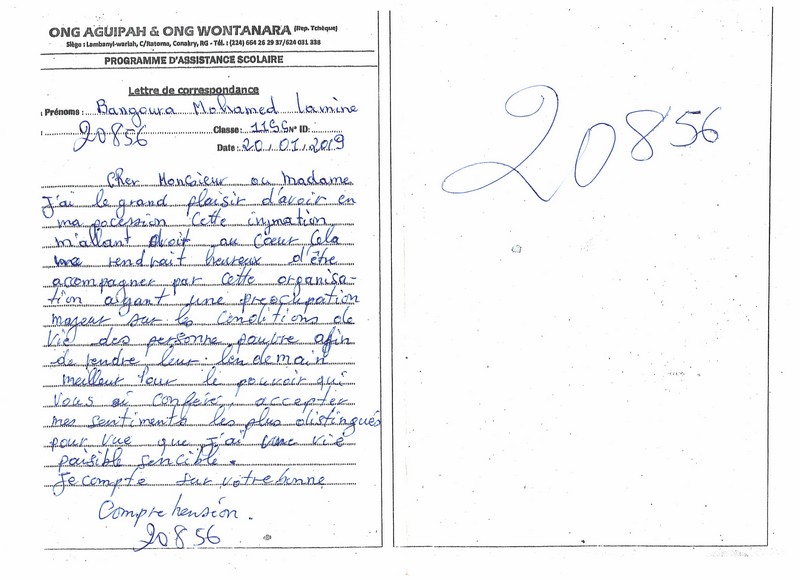 ONG AGUIPAH & ONG WONTANARA (Rep. Tchèque)
Siège : Lambanyi-wariah, C/Ratoma, Conakry, RG - Tél. : (224) 664 26 29 37/624 031 338
PROGRAMME D'ASSISTANCE SCOLAIRE
Lettre de correspondance
Prénoms : Bangoura Mohamed lamine
: 20856 Classe : 11SS N° ID:
Date : 20/01/2019
Cher Monsieur ou Madame
J'ai le grand plaisir d'avoir en
ma pocession Cette
m'allant droit au Cœur Cela
me rendrait heureux d'être
accompagner par cette organisa-
tion ayant une preocupation
majeur sur les Conditions de
vie des personne pauvre afin
de rendre leur lendemain
meilleur Pour le pouvoir qui
vous ai conféré, accepter
mes sentiments les plus distingués
pour vue que j'ai une vie
paisible sencible.
Je compte sur votre bonne
Comprehension.
20856
20856